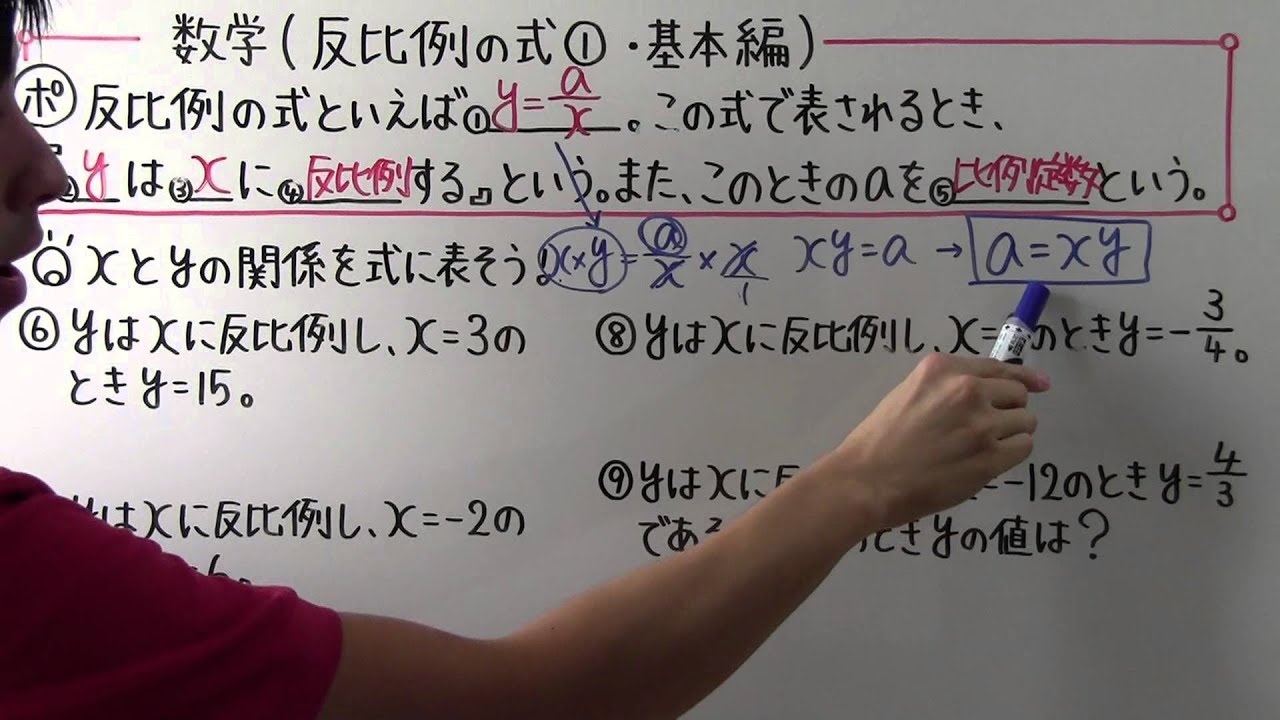 数学(反比例の式①・基本編)
ポ 反比例の式といえば① y=a/x 。この式で表されるとき、
『② y は③ x に④反比例する』という。また、このときのaを⑤比例定数という。
xとyの関係を式に表そう! x×y=a/x×x/1 xy=a → a=xy
⑥ yはxに反比例し、x=3の
ときy=15。
⑧ yはxに反比例し、x= のときy=-3/4。
yはxに反比例し、x=-2の
6。
⑨ yはxに反 =-12のときy=4/3
であ ときyの値は?